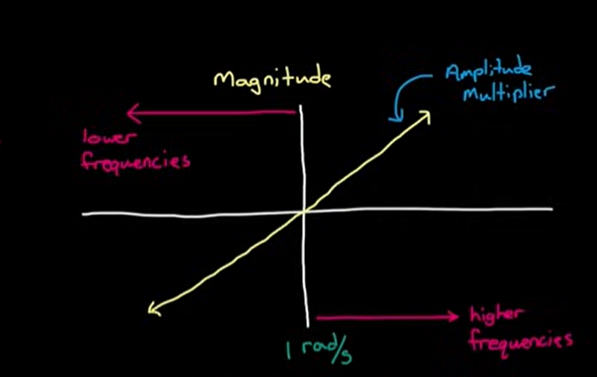 Magnitude
Amplitude
Multiplier
lower
frequencies
higher
frequencies
1 rad/s